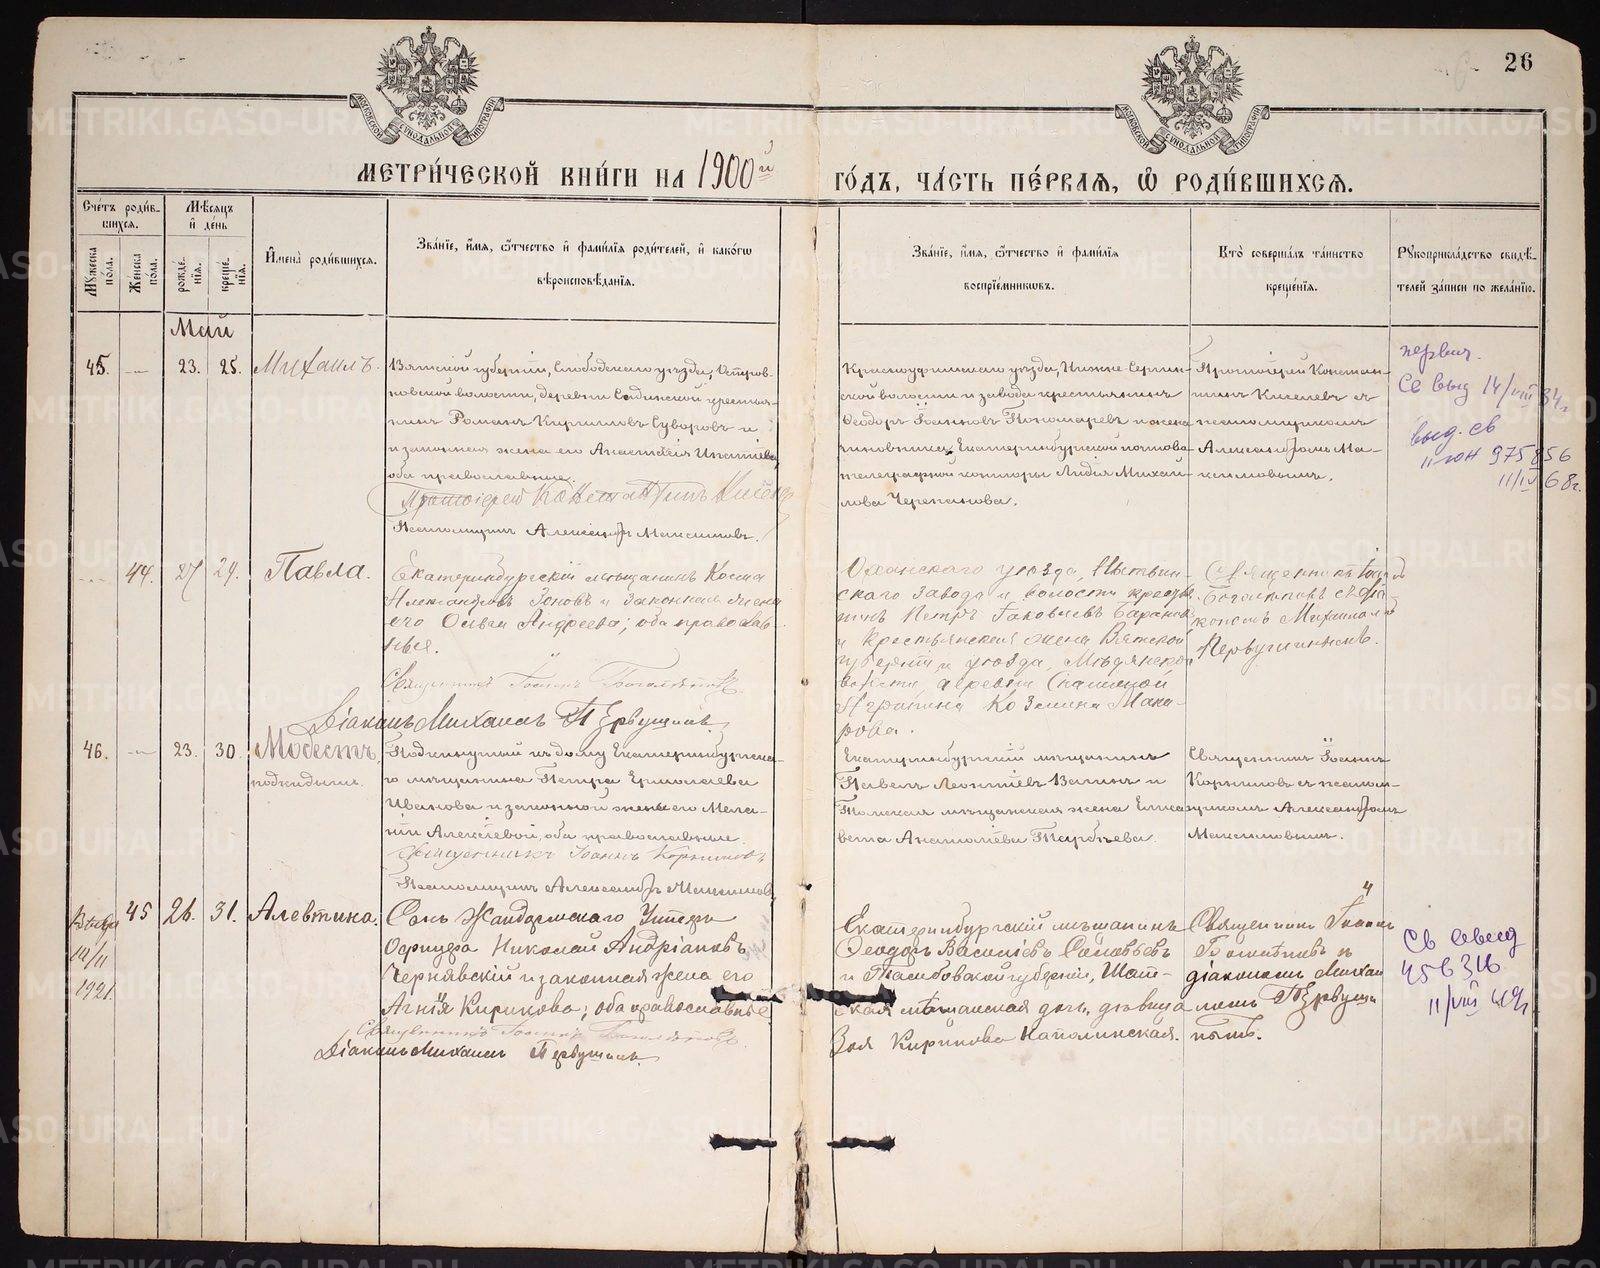 26
МОСКОВСКОЙ СѴНОДАЛЬНОЙ ТИПОГРАФІИ
МОСКОВСКОЙ СѴНОДАЛЬНОЙ ТИПОГРАФІИ
МЕТРИ́ЧЕСКОЙ КНИ́ГИ НА 1900й ГО́ДЪ, ЧА́СТЬ ПЕ́РВАЯ, Ѡ РОДИ́ВШИХСЯ.
Сче́тъ роди́вшихся.
Мѣ́сяцъ и де́нь
Мужеска по́ла.
Же́нска по́ла.
рожде́нїя.
креще́нїя.
И҆мена̀ роди́вшихся.
Зва́нїе, и҆́мя, ѻ҆́тчество и҆ фами́лїя роди́телей, и҆ како́гѡ
вѣроисповѣ́данїя.
Зва́нїе, и҆́мя, ѻ҆́тчество и҆ фами́лїя
воспрїе́мникѡвъ.
Кто̀ соверша́лъ та́инство
креще́нїя.
Рукоприкла́дство свидѣ́-
телей за́писи по жела́нїю.
Май
45. — 23. 25. Михаилъ.
Вятской губерніи, Слободскаго уѣзда,
ковской волости, деревни крестья-
нинъ Романъ Кирилловъ Суворовъ и
законная жена его Анастасія Ипатіева,
оба православные.
Протоіерей Константинъ
Псаломщикъ Александръ Максимовъ.
Красноуфимскаго уѣзда, Нижне-Сергин-
ской волости и завода крестьянинъ
Ѳеодоръ Іоанновъ Пономаревъ и жена
чиновника Екатеринбургской почтово-
телеграфной конторы Лидія Михай-
лова Черепанова.
Протоіерей Констан-
тинъ съ
псаломщикомъ
Александромъ Ма-
ксимовымъ.
первич.
Св выд 14/VIII 34г
выд. св
II-юн 975856
11/IV 68г.
44. 27 29. Павла.
Екатеринбургскій мѣщанинъ Косма
Александровъ и законная жена
его Ольга Андреева; оба православ-
ные.
Священникъ Іоаннъ
Діаконъ Михаилъ Первушинъ.
Оханскаго уѣзда, Нытвин-
скаго завода и волости крестья-
нинъ Петръ Іаковлевъ Барановъ
и крестьянская жена Вятской
губерніи и уѣзда, Мѣдянской
волости, деревни
Агрипина Козьмина Мака-
рова.
Священникъ Іоаннъ
съ діа-
кономъ Михаиломъ
Первушинымъ.
46. — 23. 30. Модестъ,
подкидышъ.
Подкинутый къ дому Екатеринбургска-
го мѣщанина Петра Ермолаева
Иванова и законной жены его Мела-
ніи Алексіевой, оба православные.
Священникъ Іоаннъ Корниловъ
Псаломщикъ Александръ Максимовъ
Екатеринбургскій мѣщанинъ
Павелъ Леонтіевъ и
Томская мѣщанская жена Елиса-
вета Анатоліева
Священникъ Іоаннъ
Корниловъ съ псалом-
щикомъ Александромъ
Максимовымъ.
1921.
45 26. 31. Алевтина.
Жандармскаго Унтеръ
Офицера Николай Андріановъ
Чернявскій и законная жена его
Агнія Кирикова; оба православные
Священникъ Іоаннъ
Діаконъ Михаилъ Первушинъ.
Екатеринбургскій мѣщанинъ
Ѳеодоръ Василіевъ Соловьевъ
и Тамбовской губерніи, Шат-
ская мѣщанская дочь, дѣвица
Зоя Кирикова
Священникъ Іоаннъ
съ
діакономъ Михаи-
ломъ Первуши-
нымъ.